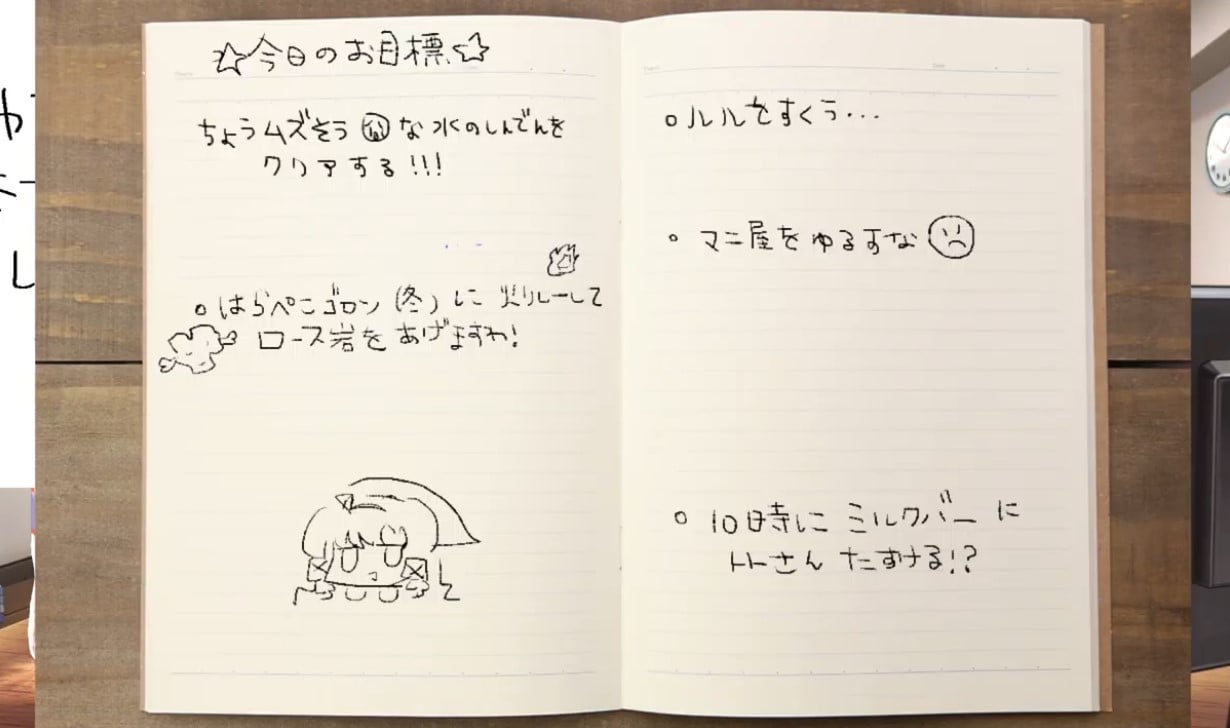 ☆今日のお目標☆
ちょうムズそうな水のしんでんを
クリアする!!!
○はらぺこゴロン(冬)に火リレーして
ロース岩をあげますわ!
○ルルをすくう...
○マニ屋をゆるすな
○10日時に ミルクバーに
トトさん たすける!?